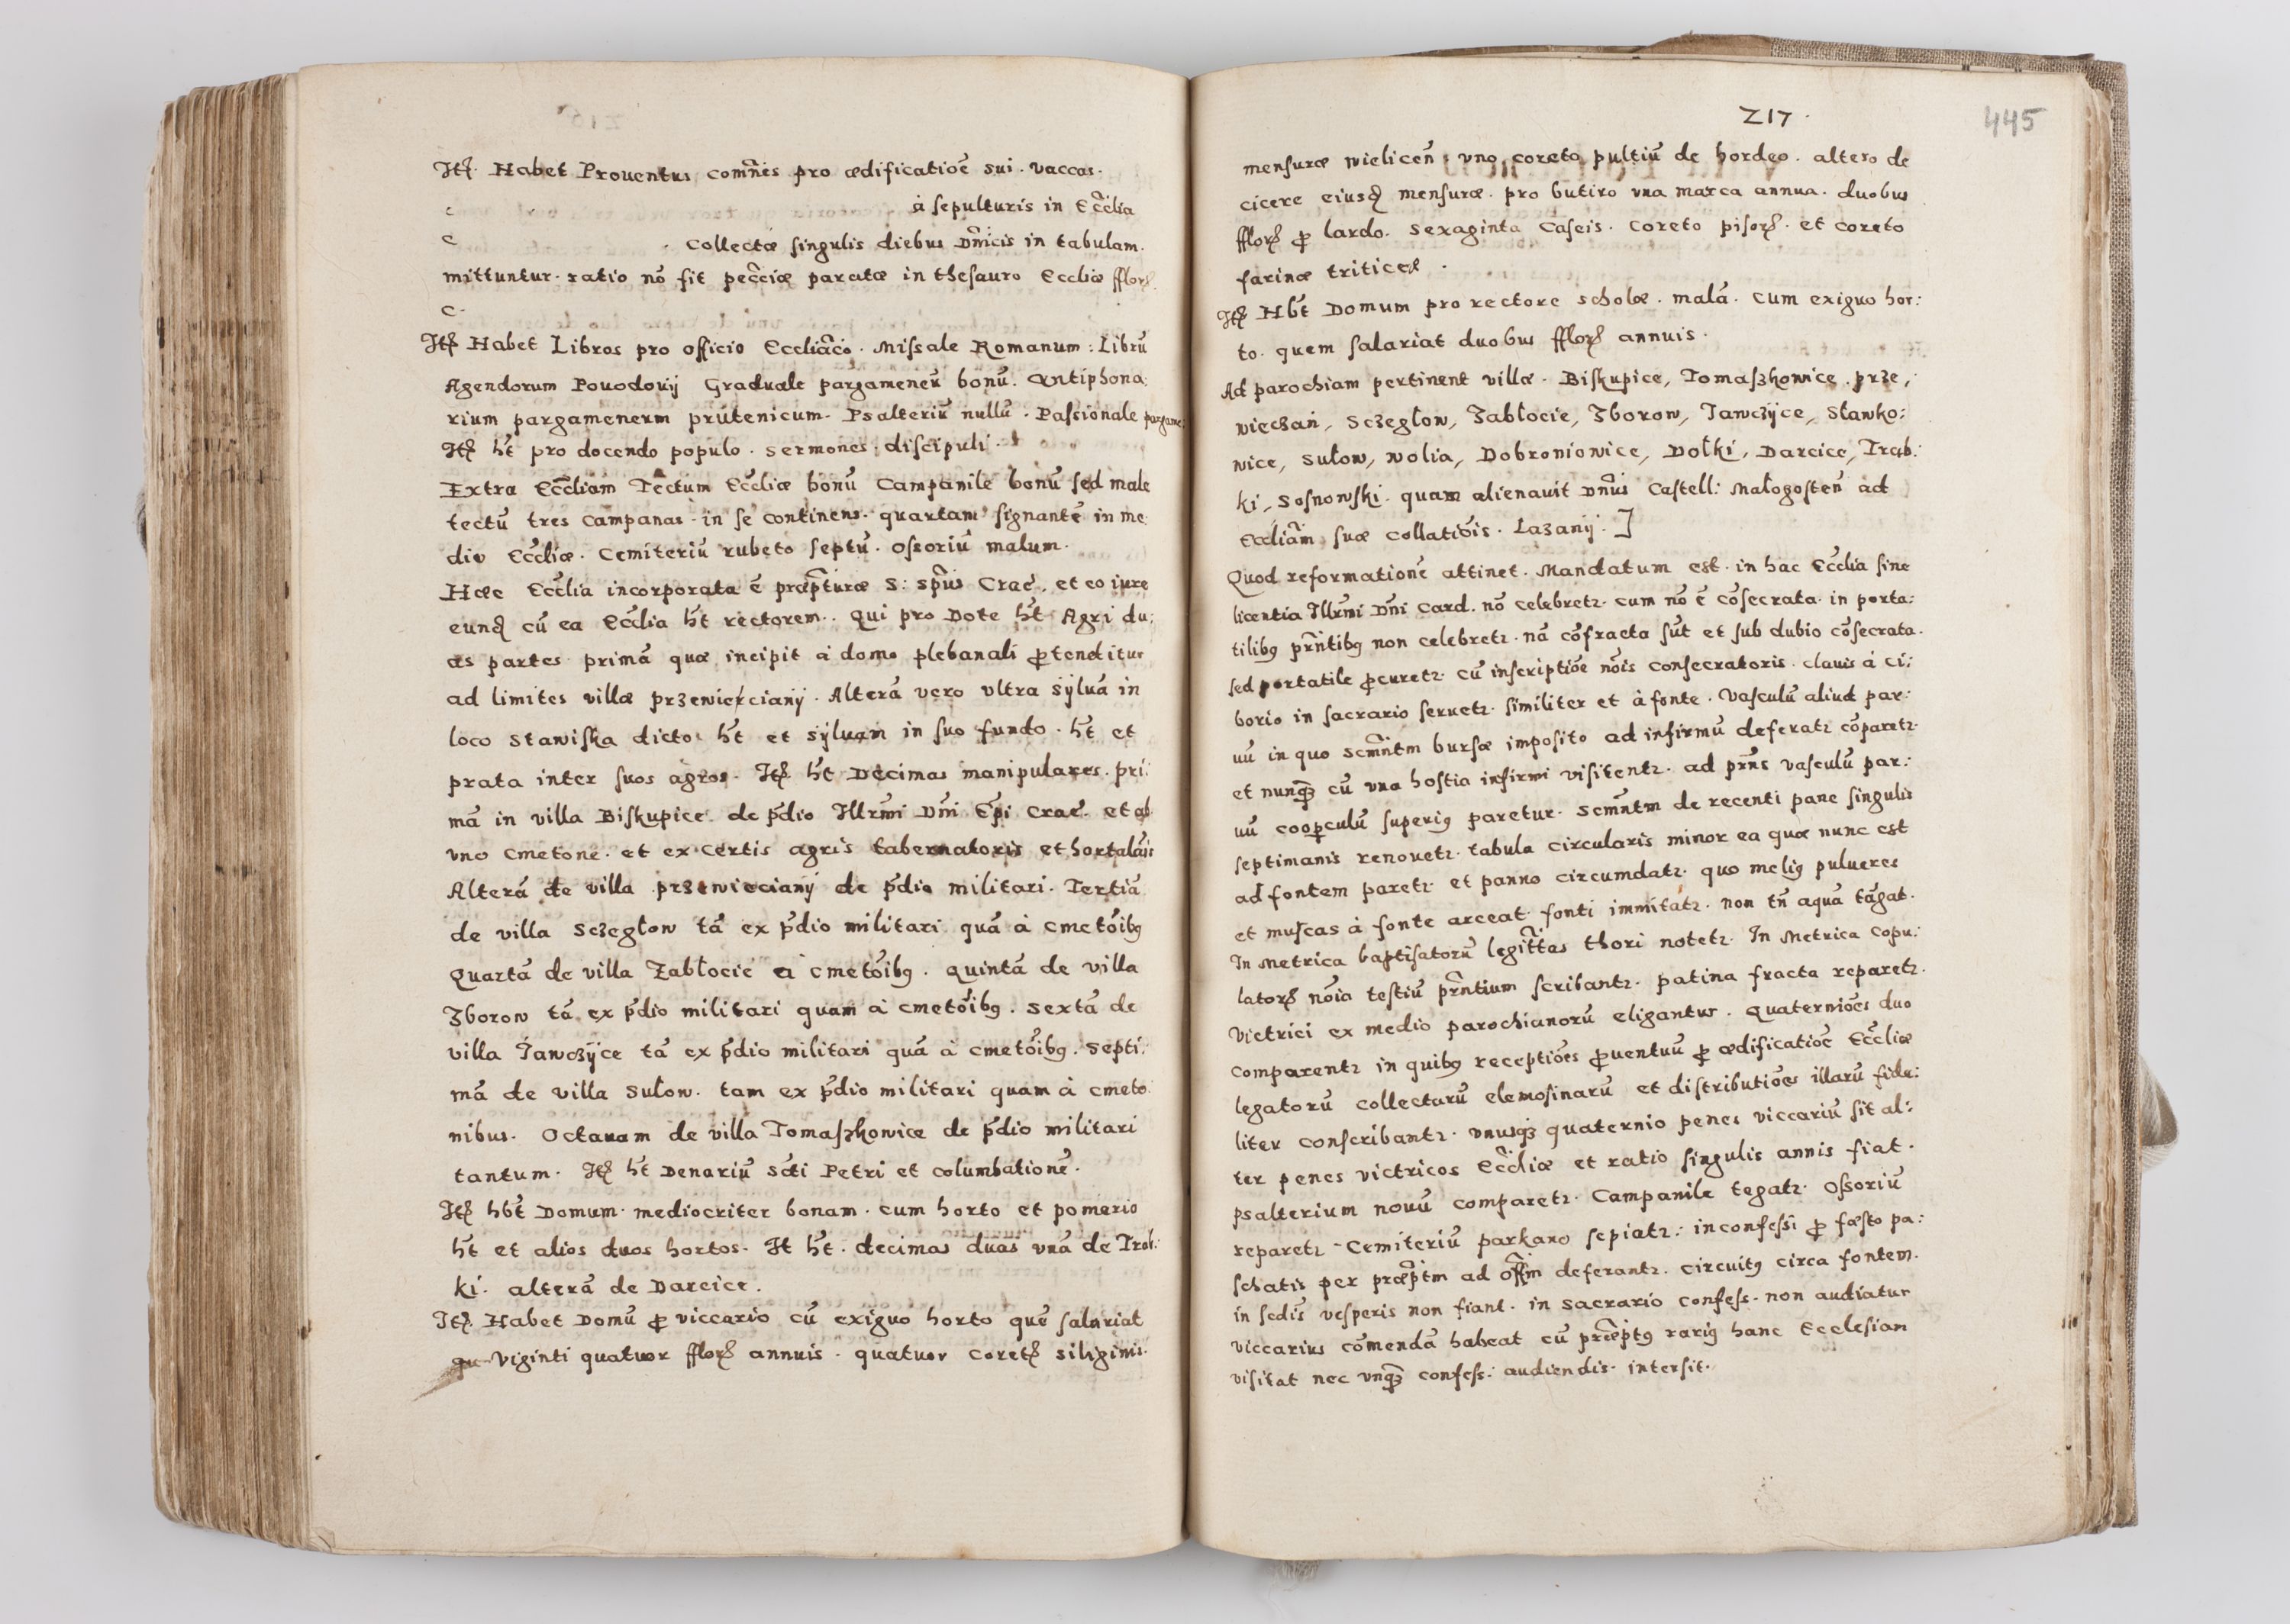 Itꝫ. Habet Prouentus com̃nes pro ædificatiõe sui. vaccas.
c à sepulturis in Ecc̃lia
c . collectæ singulis diebus Dm̃icis in tabulam.
mittuntur. ratio nõ fit pecc̃iæ paratæ in thesauro Eccliæ fflorꝫ
c.
Itꝫ Habet Libros pro officio Eccliãco. Missale Romanum: Librũ
Agendorum Pouodouij Graduale pargameneũ bonũ. Antiphona:
rium pargamenem prutenicum. Psalteriũ nullũ. Passionale pargame:
Itꝫ ht̃ pro docendo populo. sermones. discipuli.
Extra Ecc̃liam Tectum Ecc̃liæ bonũ Campanile bonũ sed male
tectũ tres Campanas. in se continens. quartam signantẽ in me:
dio Ecc̃liæ. Cemiteriũ rubeto septũ. Ossoriũ malum.
Hæc Ecc̃lia incorporata ẽ præp̃turæ S: Sp̃us Crac̃. et eo iure
eunꝗ cũ ea Ecc̃lia ht̃ rectorem.. Qui pro Dote ht̃ Agri du:
as partes primã quæ incipit à domo plebanali ꝓtenditur
ad limites villæ przewierciany. Alterã vero vltra sÿluã in
loco Stawiska dicto ht̃ et sÿluam in suo fundo. ht̃ et
prata inter suos agros. Itꝫ ht̃ Decimas manipulares. pri:
mã in villa Biskupice de p̃dio Illrm̃i Dñi Ep̃i Crac̃. et ab
vno cmetone. et ex certis agris tabernatoris et hortulãis
Alterã de villa przewieciany de p̃dio militari. Tertiã
de villa Sczegłow tã ex p̃dio militari quã à cmetõibꝰ
Quartã de villa Zabłocie à cmetõibꝰ. Quintã de villa
Zborow tã ex p̃dio militari quam à cmetõibꝰ. Sextã de
villa Jawczÿce tã ex p̃dio militari quã à cmetõibꝰ. Septi:
mã de villa Sułow. tam ex p̃dio militari quam à cmeto
nibus. Octauam de villa Tomaszkowice de p̃dio militari
tantum. Itꝫ ht̃ Denariũ Scti Petri et columbationẽ.
Itꝫ hbt̃ Domum mediocriter bonam. cum horto et pomerio
ht̃ et alios duos hortos. It ht̃. decimas duas vnã de Trąb:
ki. alterã de Darcice.
Itꝫ Habet Domũ ꝓ viccario cũ exiguo horto quẽ salariat
viginti quatuor fflorꝫ annuis. quatuor coretꝫ siliginis.
217.
445
mensuræ wielicen̄. vno coreto pultiũ de hordeo. altero de
cicere eiusꝗ mensuræ. pro butiro vna marca annua. duobus
fflorꝫ ꝓ lardo. sexaginta caseis. coreto pisorꝫ. et coreto
farinæ triticeæ.
Itꝫ Hbt̃ Domum pro rectore scholæ. malã. cum exiguo hor:
to. quem salariat duobus fflorꝫ annuis.
Ad parochiam pertinent villæ. Biskupice, Tomaszkowice. prze,
wieczan, Sczegłow, Zabłocie, Zborow, Jawczÿce, Sławko:
wice, Sułow, wolia, Dobroniowice, Dołki, Darcice, Trąb:
ki, Sosnowski. quam alienauit Dñus Castell: Małogosten̄ ad
Eccliãm suæ collatiõis. Lazanij. ]
Quod reformationẽ attinet. Mandatum est. in hac Ecc̃lia sine
licentia Illrm̃i Dñi Card. nõ celebretꝛ. cum nõ ẽ cõsecrata. in porta:
tilibꝰ prñtibꝰ non celebretꝛ. nã cõfracta sũt et sub dubio cõsecrata.
sed portatile ꝓcuretꝛ. cũ inscriptiõe nõis consecratoris. clauis à ci:
borio in sacrario seruetꝛ. similiter et à fonte. Vasculũ aliud par:
uũ in quo Scm̃ntm bursæ imposito ad infirmũ deferatꝛ cõparetꝛ.
et nunqꝫ cũ vna hostia infirmi visitentꝛ. ad prñs vasculũ par:
uũ cooꝑculũ superiꝰ paretur. Scm̃ntm de recenti pane singulis
septimanis renouetꝛ. tabula circularis minor ea quæ nunc est
ad fontem paretꝛ et panno circumdatꝛ. quo meliꝰ pulueres
et muscas à fonte arceat. fonti immitatꝛ. non tñ aquã tãgat.
In Metrica baptisatorũ legitt̃as thori notetꝛ. In Metrica copu:
latorꝫ nõia testiũ prñtium scribantꝛ. patina fracta reparetꝛ.
Victrici ex medio parochianorũ eligantur. Quaterniões duo
comparentꝛ in quibꝰ receptiões ꝓuentuũ ꝓ ædificatiõe Ecc̃liæ
legatorũ collectarũ elemosinarũ et distributiões illarũ fide:
liter conscribantꝛ. vnusqꝫ quaternio penes viccariũ sit al:
ter penes victricos Ecc̃liæ et ratio singulis annis fiat.
psalterium nouũ comparetꝛ. Campanile tegatꝛ. Ossoriũ
reparetꝛ. Cemiteriũ parkano sepiatꝛ: inconfessi ꝓ fæsto pa:
schatis per præp̃tm ad Off̃m deferantꝛ. circuitꝰ circa fontem.
in sedis vesperis non fiant. in sacrario confess. non audiatur
viccarius cõmendã habeat cũ præp̃tꝰ rariꝰ hanc Ecclesiam
visitat nec vnqꝫ confess: audiendis. intersit.